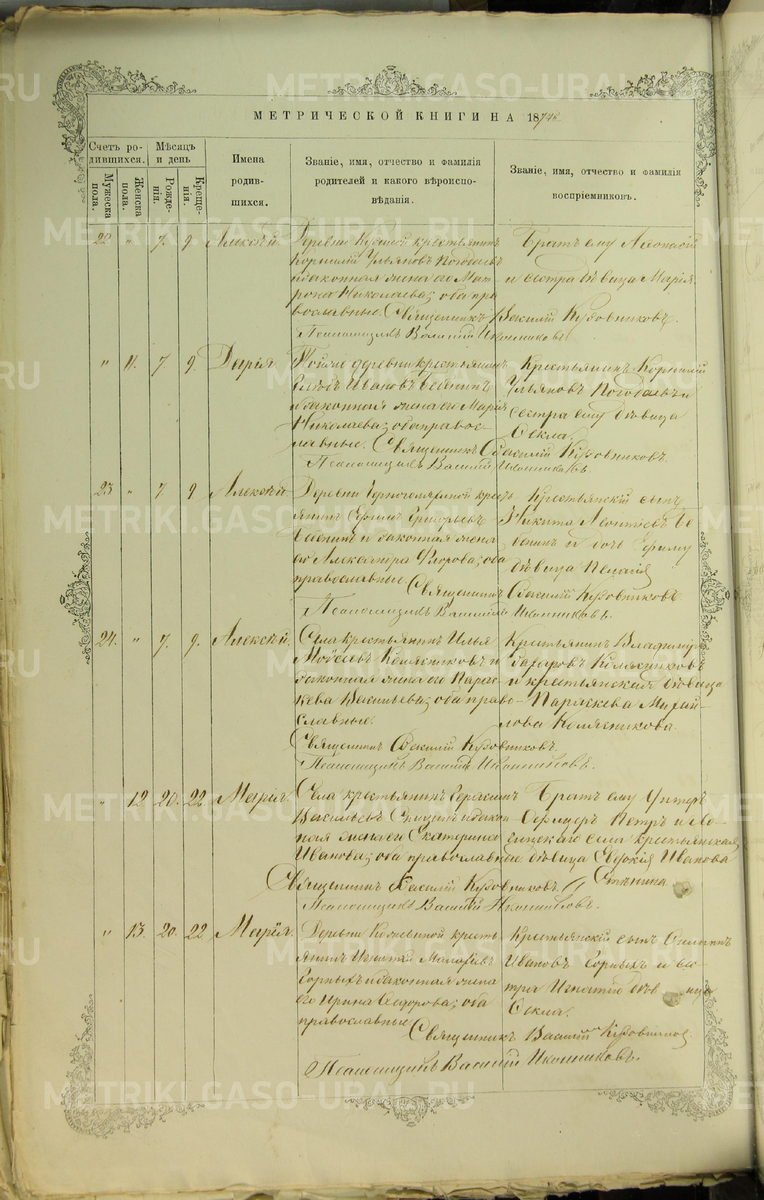 METRIKI.GASO-URAL.RU
МЕТРИЧЕСКОЙ КНИГИ НА 187
Счетъ ро-
дившихся.
Мужеска
пола.
Женска
пола.
Мѣсяцъ
и день
Рожде-
нія.
Креще-
нія.
Имена
родив-
шихся.
Званіе, имя, отчество и фамилія
родителей и какого вѣроиспо-
вѣданія.
Званіе, имя, отчество и фамилія
воспріемниковъ.
22 " 7. 9 Алексѣй.
Деревни крестьянинъ
Корнилій Ульяновъ
и законная жена его Мат-
рона Николаева; оба пра-
вославные. Священникъ Василій Кузовниковъ.
Псаломщикъ Василій Иконниковъ
Братъ ему
и сестра дѣвица Марія.
" 11. 7 9. Дарія
Тойже деревни крестьянинъ
Ивановъ
и законная жена его Марія
Николаева; оба правос-
лавные. Священникъ Василій Кузовниковъ.
Псаломщикъ Василій Иконниковъ.
Крестьянинъ Корнилій
Ульяновъ и
сестра ему дѣвица
Ѳекла.
23 " 7 9 Алексѣй.
Деревни кресть-
янинъ Ефимъ Григорьевъ
и законная жена
его Александра Флорова; оба
православные Священникъ Василій Кузовниковъ
Псаломщикъ Василій Иконниковъ.
Крестьянскій сынъ
Никита Леонтьевъ
и дочь Ефиму
дѣвица Пелагія
24. " 7. 9. Алексѣй.
Села крестьянинъ Илья
Моѵсеевъ Колясниковъ и
законная жена его Парас-
кева Васильева; оба право-
славные.
Священникъ Василій Кузовниковъ.
Псаломщикъ Василій Иконниковъ.
Крестьянинъ Владимиръ
Захаровъ Колясниковъ
и крестьянская дѣвица
Параскева Михай-
лова Колясникова.
" 12 20. 22 Марія.
Села крестьянинъ Герасимъ
Васильевъ и закон-
ная жена его Екатерина
Иванова; оба православные
Священникъ Василій Кузовниковъ.
Псаломщикъ Василій Иконниковъ.
Братъ ему Унтеръ
Офицеръ Петръ и
села крестьянская
дѣвица Евдокія Иванова
" 13. 20. 22 Марія.
Деревни кресть-
янинъ Игнатій
Горныхъ и законная жена
его Ирина Ѳедорова; оба
православные
Священникъ Василій Кузовниковъ.
Псаломщикъ Василій Иконниковъ.
Крестьянскій сынъ Филиппъ
Ивановъ Горныхъ и сес-
тра Игнатію дѣвица
Ѳекла.